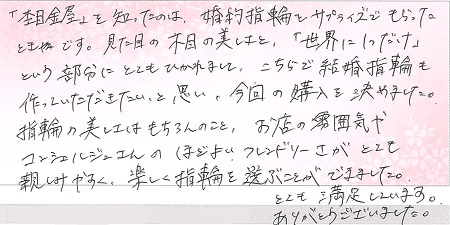 「杢目金屋」を知ったのは、婚約指輪をサプライズでもらった
ときです。見た目の木目の美しさと、「世界に1つだけ」
という部分にとてもひかれまして、こちらで結婚指輪も
作っていただきたいと思い、今回の購入を決めました。
指輪の美しさはもちろんのこと、お店の雰囲気や
コンシェルジュさんのほどよいフレンドリーさがとても
親しみやすく、楽しく指輪を選ぶことができました。
とても満足しています。
ありがとうございました。